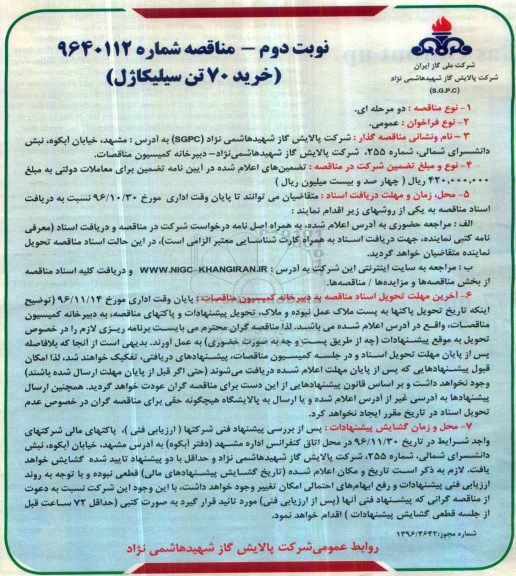 شرکت ملی گاز ایران
شرکت پالایش گاز شهیدهاشمی نژاد
(S.G.P.C)
نوبت دوم – مناقصه شماره ۹۶۴۰۱۱۲
(خرید ۷۰ تن سیلیکاژل)
۱- نوع مناقصه : دو مرحله ای.
۲- نوع فراخوان : عمومی.
۳ – نام ونشانی مناقصه گذار : شرکت پالایش گاز شهیدهاشمی نژاد (SGPC) به آدرس : مشهد، خیابان آبکوه، نبش
دانشسرای شمالی، شماره ۲۵۵، شرکت پالایش گاز شهیدهاشمی نژاد- دبیرخانه کمیسیون مناقصات.
۴- نوع و مبلغ تضمین شرکت در مناقصه : تضمین‌های اعلام شده در آیین نامه تضمین برای معاملات دولتی به مبلغ
۴۲۰,۰۰۰,۰۰۰ ریال ( چهار صد و بیست میلیون ریال )
۵- محل، زمان و مهلت دریافت اسناد : متقاضیان می توانند تا پایان وقت اداری مورخ ۹۶/۱۰/۳۰ نسبت به دریافت
اسناد مناقصه به یکی از روشهای زیر اقدام نمایند :
الف : مراجعه حضوری به آدرس اعلام شده، به همراه اصل نامه درخواست شرکت در مناقصه و دریافت اسناد (معرفی
نامه کتبی نماینده، جهت دریافت اسناد به همراه کارت شناسایی معتبر الزامی است)، در این حالت اسناد مناقصه تحویل
نماینده متقاضیان خواهد گردید.
ب : مراجعه به سایت اینترنتی این شرکت به آدرس : WWW.NIGC-KHANGIRAN.IR و دریافت کلیه اسناد مناقصه
از بخش مناقصه‌ها و مزایده‌ها / مناقصه‌ها.
۶- آخرین مهلت تحویل اسناد مناقصه به دبیرخانه کمیسیون مناقصات : پایان وقت اداری مورخ ۹۶/۱۱/۱۴ (توضیح
اینکه تاریخ تحویل پاکتها به پست ملاک عمل نبوده و ملاک، تحویل پیشنهادات و پاکتهای مناقصه، به دبیرخانه کمیسیون
مناقصات، واقع در آدرس اعلام شده می باشد. لذا مناقصه گران محترم می بایست برنامه ریزی لازم را در خصوص
تحویل به موقع پیشنهادات (چه از طریق پست و چه به صورت حضوری) به عمل آورند. بدیهی است از آنجا که بلافاصله
پس از پایان مهلت تحویل اسناد و در جلسه کمیسیون مناقصات، پیشنهادهای دریافتی، تفکیک خواهند شد، لذا امکان
قبول پیشنهادهایی که پس از پایان مهلت اعلام شده دریافت می‌شوند (حتی اگر قبل از پایان مهلت ارسال شده باشند)
وجود نخواهد داشت و بر اساس قانون پیشنهادهایی از این دست برای مناقصه گران عودت خواهد گردید. همچنین ارسال
پیشنهادها به آدرسی غیر از آدرس اعلام شده و یا ارسال به پالایشگاه هیچگونه حقی برای مناقصه گران در خصوص عدم
تحویل اسناد در تاریخ مقرر ایجاد نخواهد کرد.
۷- محل و زمان گشایش پیشنهادات : پس از بررسی پیشنهاد فنی شرکتها ( ارزیابی فنی )، پاکتهای مالی شرکتهای
واجد شرایط در تاریخ ۹۶/۱۱/۳۰ در محل اتاق کنفرانس اداره مشهد (دفتر آبکوه) به آدرس مشهد، خیابان آبکوه، نبش
دانشسرای شمالی، شماره ۲۵۵، شرکت پالایش گاز شهیدهاشمی نژاد و حداقل با دو پیشنهاد تایید شده گشایش خواهد
یافت. لازم به ذکر است تاریخ و مکان اعلام شده (تاریخ گشایش پیشنهادهای مالی) قطعی نبوده و با توجه به روند
ارزیابی فنی پیشنهادات و رفع ابهام‌های احتمالی امکان تغییر وجود خواهد داشت، با این وجود این شرکت نسبت به دعوت
از مناقصه گرانی که پیشنهاد فنی آنها (پس از ارزیابی فنی) مورد تائید قرار گیرد به صورت کتبی (حداقل ۷۲ ساعت قبل
از جلسه قطعی گشایش پیشنهادات ) اقدام خواهد نمود.
شماره مجوز:۱۳۹۶/۴۶۴۲
روابط عمومی‌شرکت پالایش گاز شهیدهاشمی نژاد